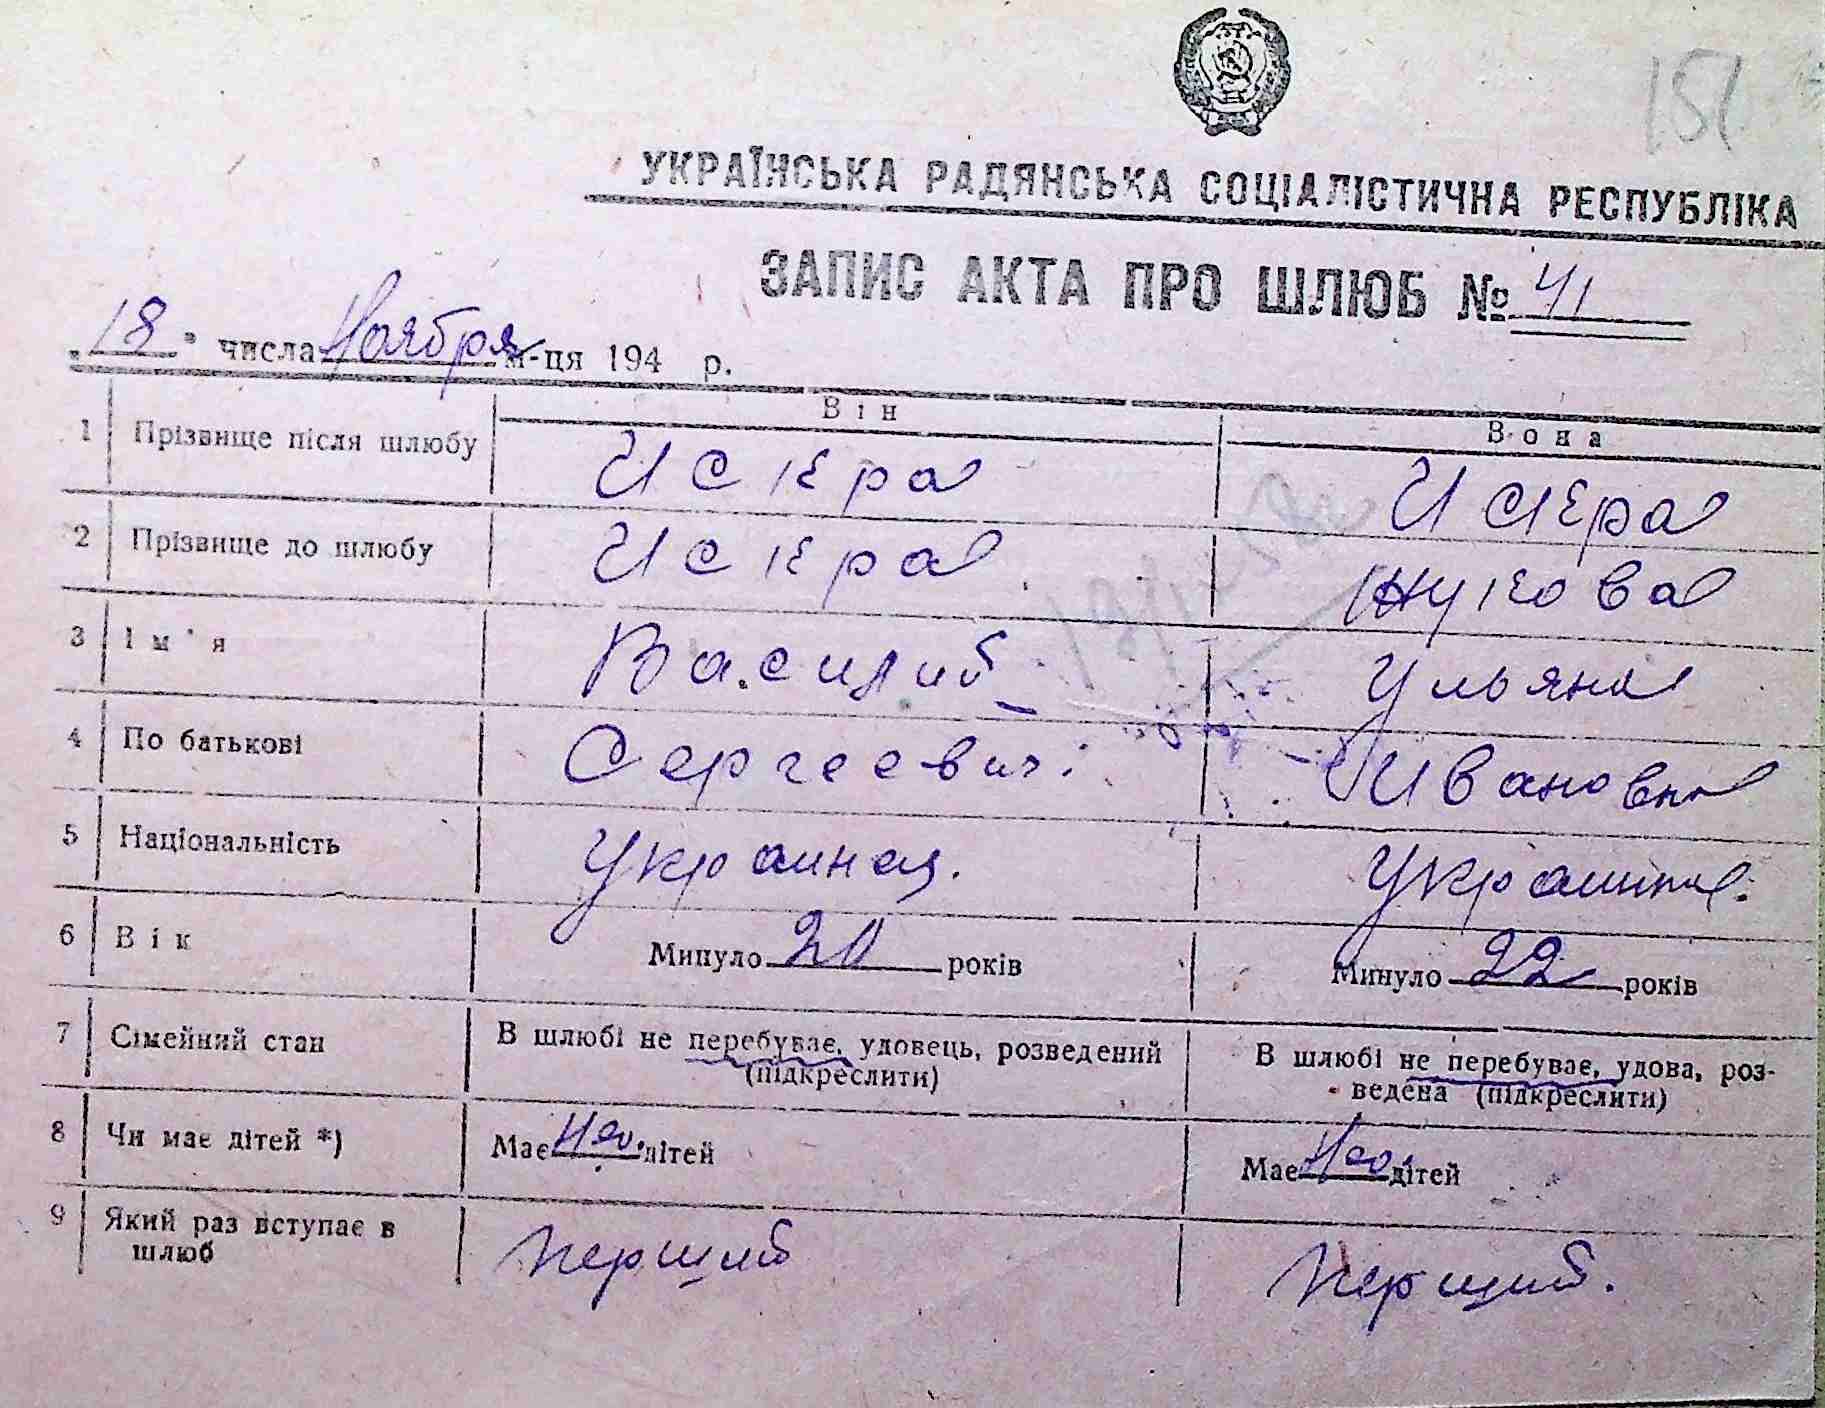 151
УКРАЇНСЬКА РАДЯНСЬКА СОЦІАЛІСТИЧНА РЕСПУБЛІКА
ЗАПИС АКТА ПРО ШЛЮБ № 41
„18" числа Ноября м-ця 194 р.
Він Вона
1 Прізвище після шлюбу Искра Искра
2 Прізвище до шлюбу Искра Жукова
3 Ім'я Василий Ульяна
4 По батькові Сергеевич Ивановна
5 Національність Украинец. Украинка.
6 Вік Минуло 20 років Минуло 22 років
7 Сімейний стан В шлюбі не перебуває, удовець, розведений В шлюбі не перебуває, удова, роз-
(підкреслити) ведена (підкреслити)
8 Чи має дітей *) Має дітей Має дітей
9 Який раз вступає в Перший Перший.
шлюб